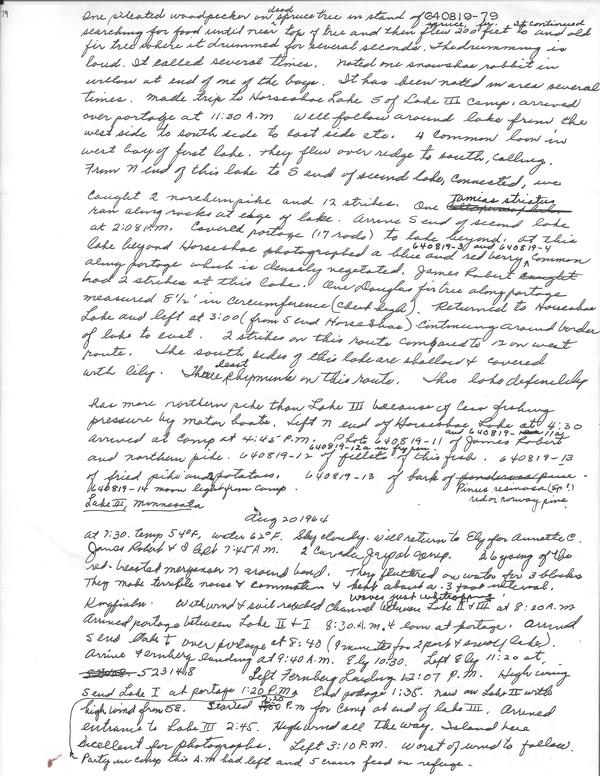 79
One pileated woodpecker on dead spruce tree in stand of 640819-79
searching for food until near top of tree and then flew 200 feet to spruce, fir, and old It continued
fir tree where it drummed for several seconds. The drumming is
loud. It called several times. Noted one snowshoe rabbit in
willow at end of one of the bays. It has been noted in area several
times. Made trip to Horseshoe Lake S of Lake III Camp. Arrived
over portage at 11:30 A.M. Will follow around lake from the
west side to south side to east side etc. 4 common loon in
west bay of first lake. They flew over ridge to south, calling.
From N end of this lake to S end of second lake, connected, we
caught 2 northern pike and 12 strikes. One Tamias striatus
ran along rocks at edge of lake. Arrive S end of second lake
at 2:08 P.M. Covered portage (17 rods) to lake beyond. At this
lake beyond Horseshoe photographed a blue and red berry 640819-3 and 640819-4 common
along portage which is densely vegetated. James Robert caught
had 2 strikes at this lake. One Douglas fir tree along portage
measured 8½' in circumference (chest high). Returned to Horseshoe
Lake and left at 3:00 (from S end Horseshoe) continuing around border
of lake to east. 2 strikes on this route compared to 12 on west
route. The south sides of this lake are shallow & covered
with lily. Three least chipmunks on this route. This lake definitely
has more northern pike than Lake III because of less fishing
pressure by motor boats. Left N end of Horseshoe Lake at 4:30
arrived at camp at 4:45 P.M. Photo 640819-11 and 640819-11a of James Robert
and northern pike. 640819-12 640819-12a in frypan. of fillets of this fish. 640819-13
of fried pike and potatoes. 640819-13 of bark of ponderosa pine.
640819-14 moon light from camp. Pinus resinosa (sp.?)
Lake III, Minnesota red or norway pine
Aug 20 1964
at 7:30. temp 54°F, water 62°F. Sky cloudy. Will return to Ely for Annette C.
James Robert & I left 7:45 A.M. 2 Canada Jays at camp. 26 young of the
red-breasted merganser N around bend. They fluttered on water for 3 blocks
They make terrible noise & commotion & kept about a 3 foot interval.
Kingfisher. With wind & sail reached Channel between Lake II & III at 8:20 A.M. waves just whitecapping
Arrived portage between Lake II & I 8:30 A.M. & loon at portage. Arrived
S end Lake I over portage at 8:40 (9 minutes for 2 port & small lake).
Arrive Fernberg landing at 9:40 A.M. Ely 10:30. Left Ely 11:20 at
523148 Left Fernberg Landing 12:07 P.M. High wind
S end Lake I at portage 1:20 P.M. End portage 1:35. Now on Lake II with
high wind from SE. Started P.M for Camp at end of lake III. Arrived
entrance to Lake III 2:45. High wind all the way. Island here
excellent for photographs. Left 3:10 P.M. Worst of wind to follow.
Party in camp this A.M had left and 5 crows feed on refuge.